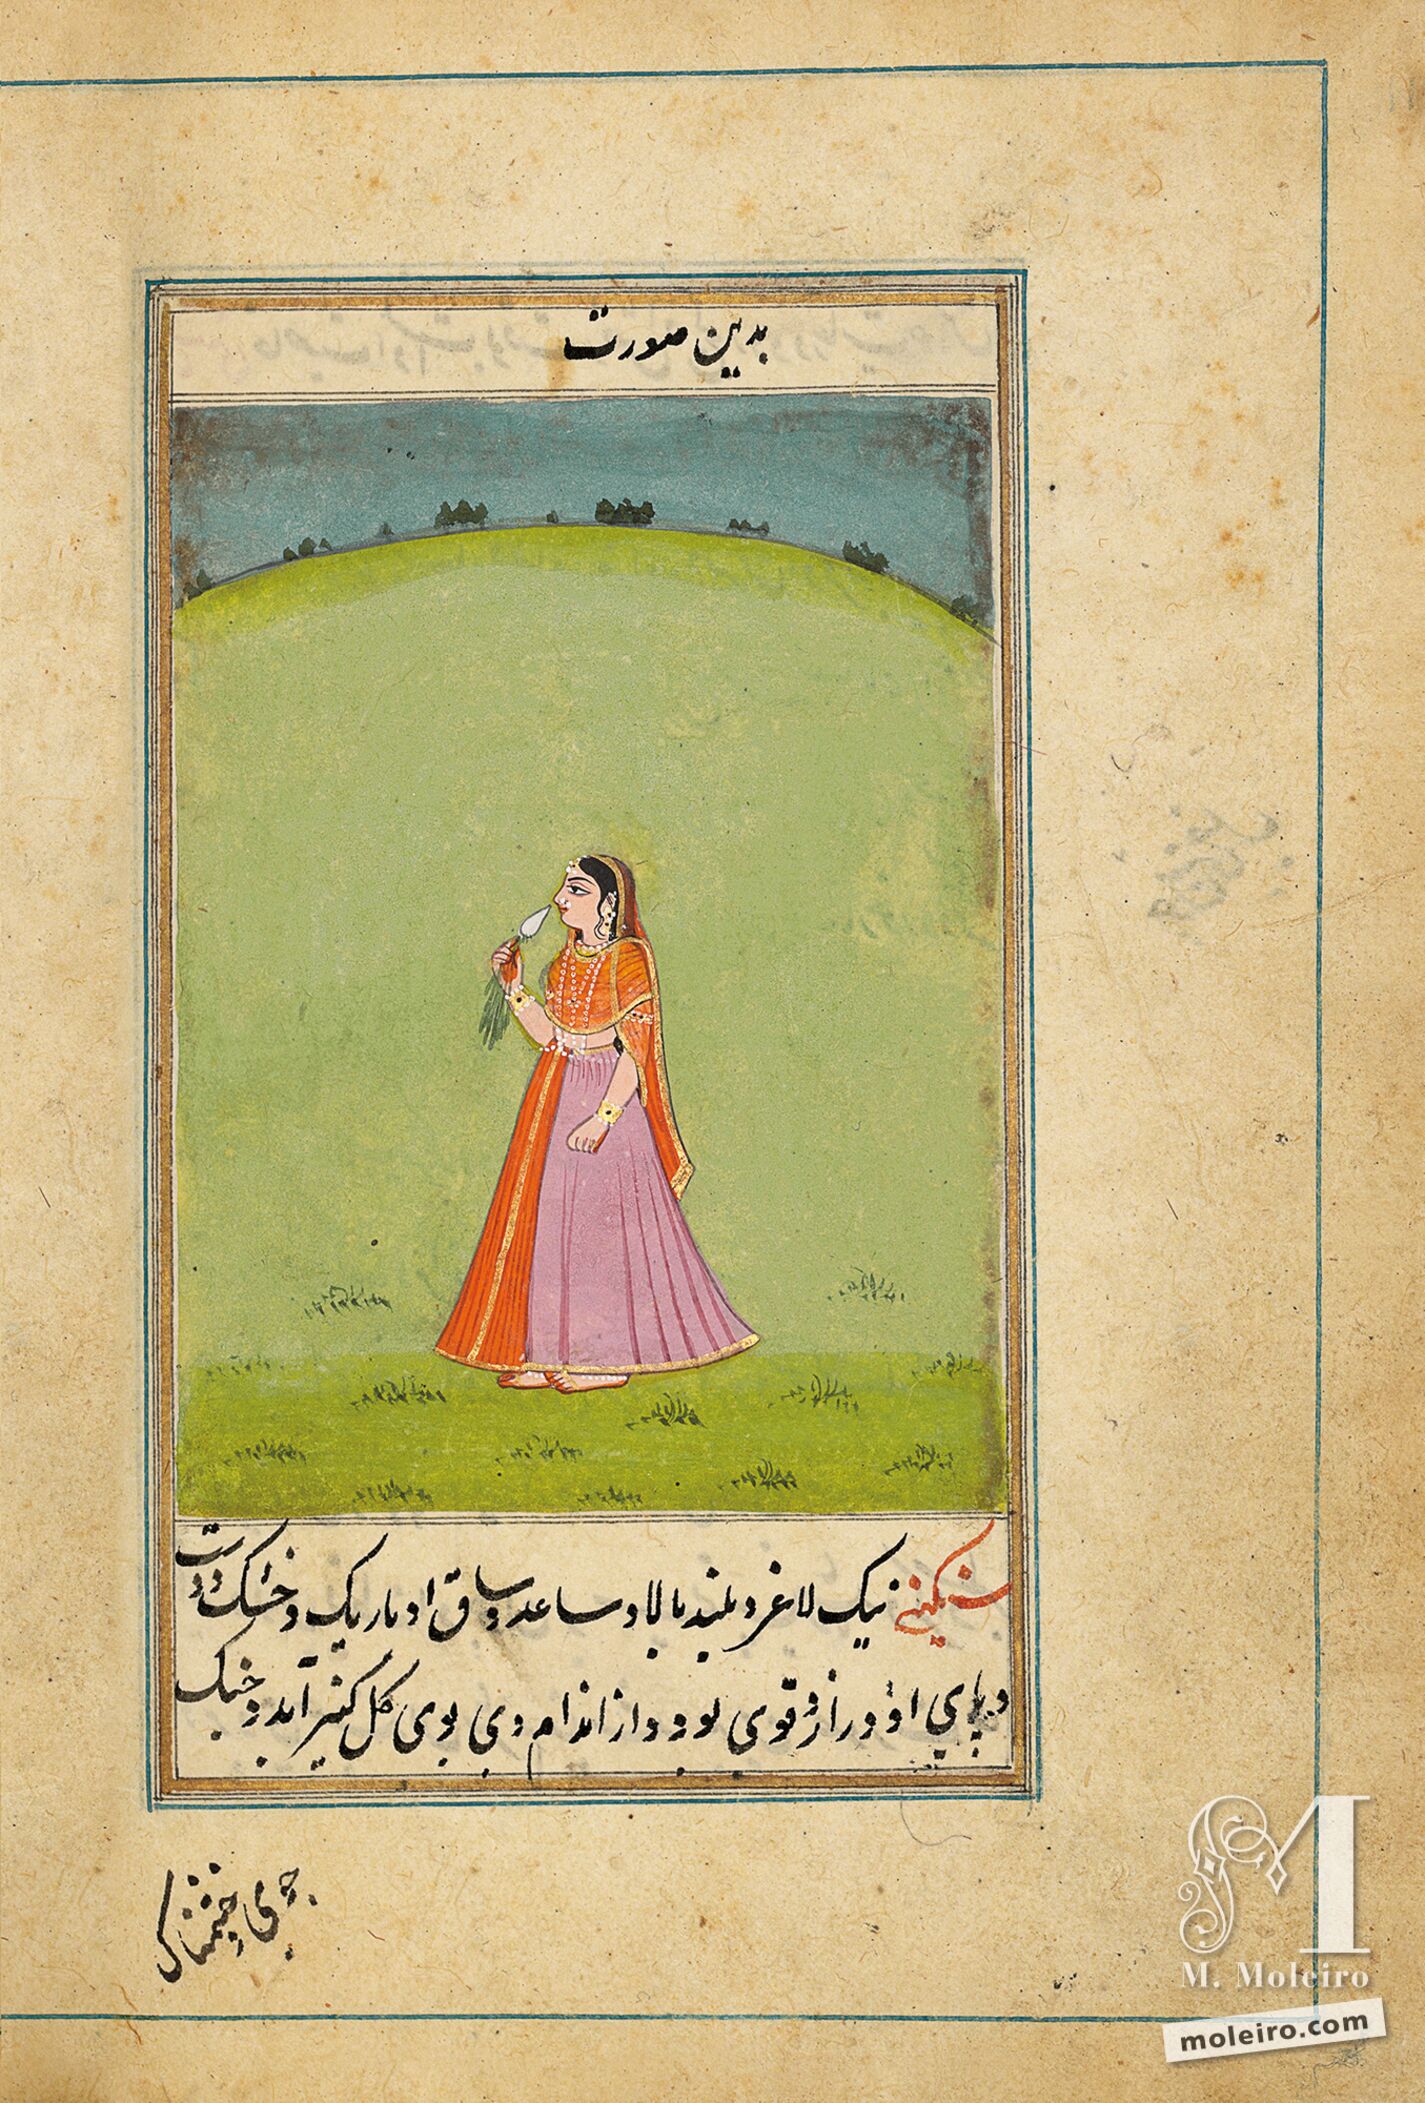 بدین صورت
سنکهنی نیک لاغر و بلند بالا و ساعد و ساق او باریک و خشک و دست
و پای او دراز و قوی بود و از اندام وی بوی گل کنیر آید و خشک
چربی خشمناک
M. Moleiro
moleiro.com